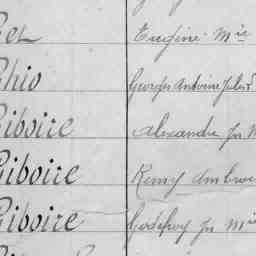 Get Eugène Mie
Ghio Georges Antoine Jules
Giboire Alexandre Jn M
Giboire Remy Ambroi
Giboire Godefroy Jn Mie